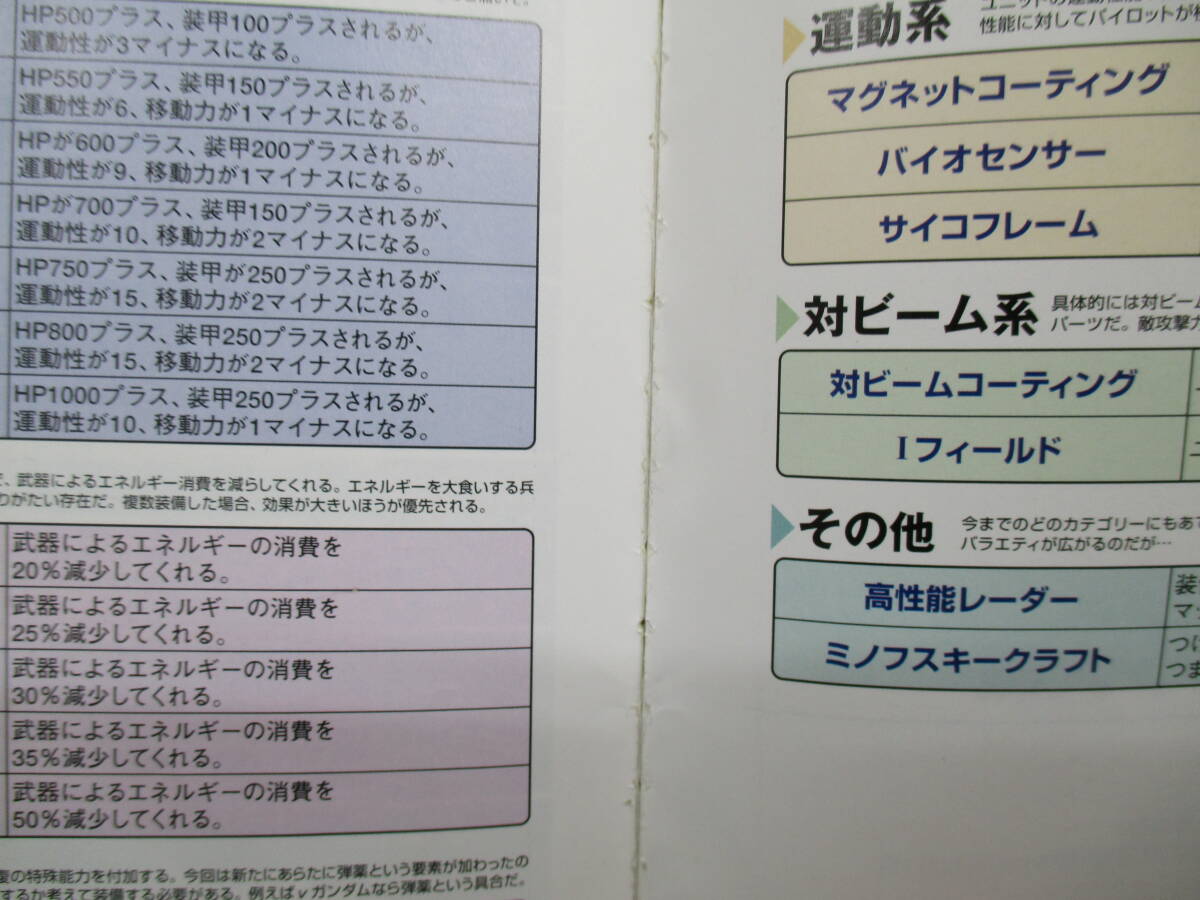 HP500プラス、装甲100プラスされるが、
運動性が3マイナスになる。
HP550プラス、装甲150プラスされるが、
運動性が6、移動力が1マイナスになる。
HPが600プラス、装甲200プラスされるが、
運動性が9、移動力が1マイナスになる。
HPが700プラス、装甲150プラスされるが、
運動性が10、移動力が2マイナスになる。
HP750プラス、装甲が250プラスされるが、
運動性が15、移動力が2マイナスになる。
HP800プラス、装甲250プラスされるが、
運動性が15、移動力が2マイナスになる。
HP1000プラス、装甲250プラスされるが、
運動性が10、移動力が1マイナスになる。
、武器によるエネルギー消費を減らしてくれる。エネルギーを大食いする兵
りがたい存在だ。複数装備した場合、効果が大きいほうが優先される。
武器によるエネルギーの消費を
20%減少してくれる。
武器によるエネルギーの消費を
25%減少してくれる。
武器によるエネルギーの消費を
30%減少してくれる。
武器によるエネルギーの消費を
35%減少してくれる。
武器によるエネルギーの消費を
50%減少してくれる。
復の特殊能力を付加する。今回は新たにあらたに弾薬という要素が加わったの
するか考えて装備する必要がある。例えばνガンダムなら弾薬という具合だ。
運動系
ユニットの運動性能
性能に対してパイロットが
マグネットコーティング
バイオセンサー
サイコフレーム
対ビーム系
具体的には対ビーム
パーツだ。敵攻撃力
対ビームコーティング
Iフィールド
その他
今までのどのカテゴリーにもあ
バラエティが広がるのだが…
高性能レーダー
装
マ
ミノフスキークラフト
つけ
つま